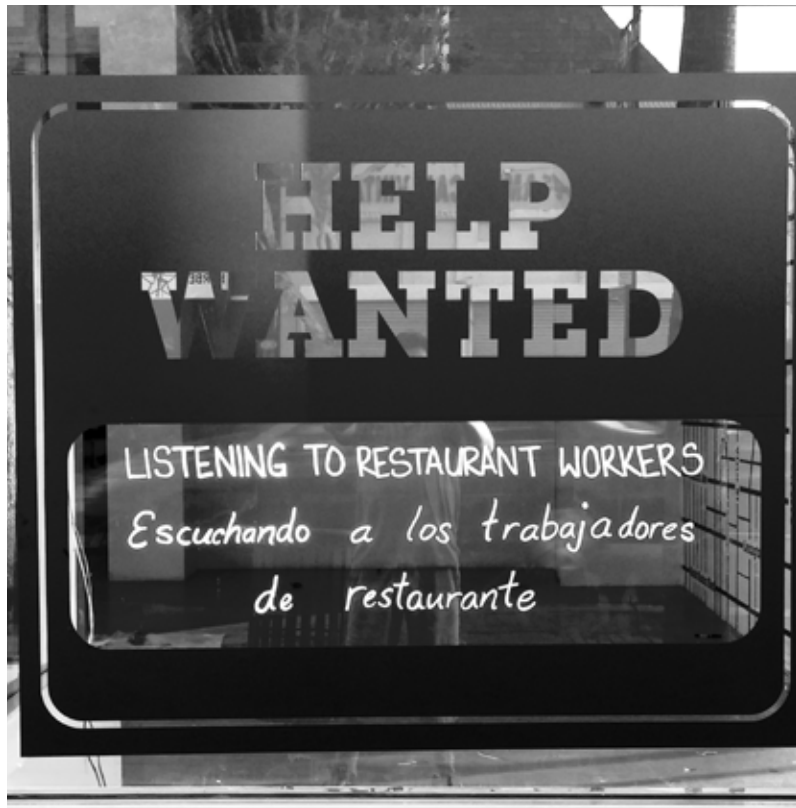 HELP
WANTED
LISTENING TO RESTAURANT WORKERS
Escuchando a los trabajadores
de restaurante